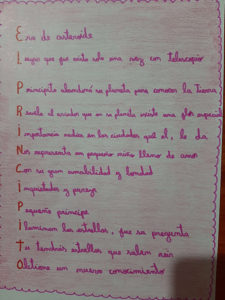 Era de asteroide
luego que fue visto solo una vez con telescopio
Principito abandonó su planeta para conocer la Tierra
Revela al aviador que en su planeta existe una flor especial
Importancia radica en los cuidados que él le da
Nos representa un pequeño niño lleno de amor
Con su gran amabilidad y bondad
Inquietudes y
Pequeño príncipe
Iluminan las estrellas, fue su pregunta
Tu tendrás estrellas que saben reir
Obtiene un nuevo conocimiento